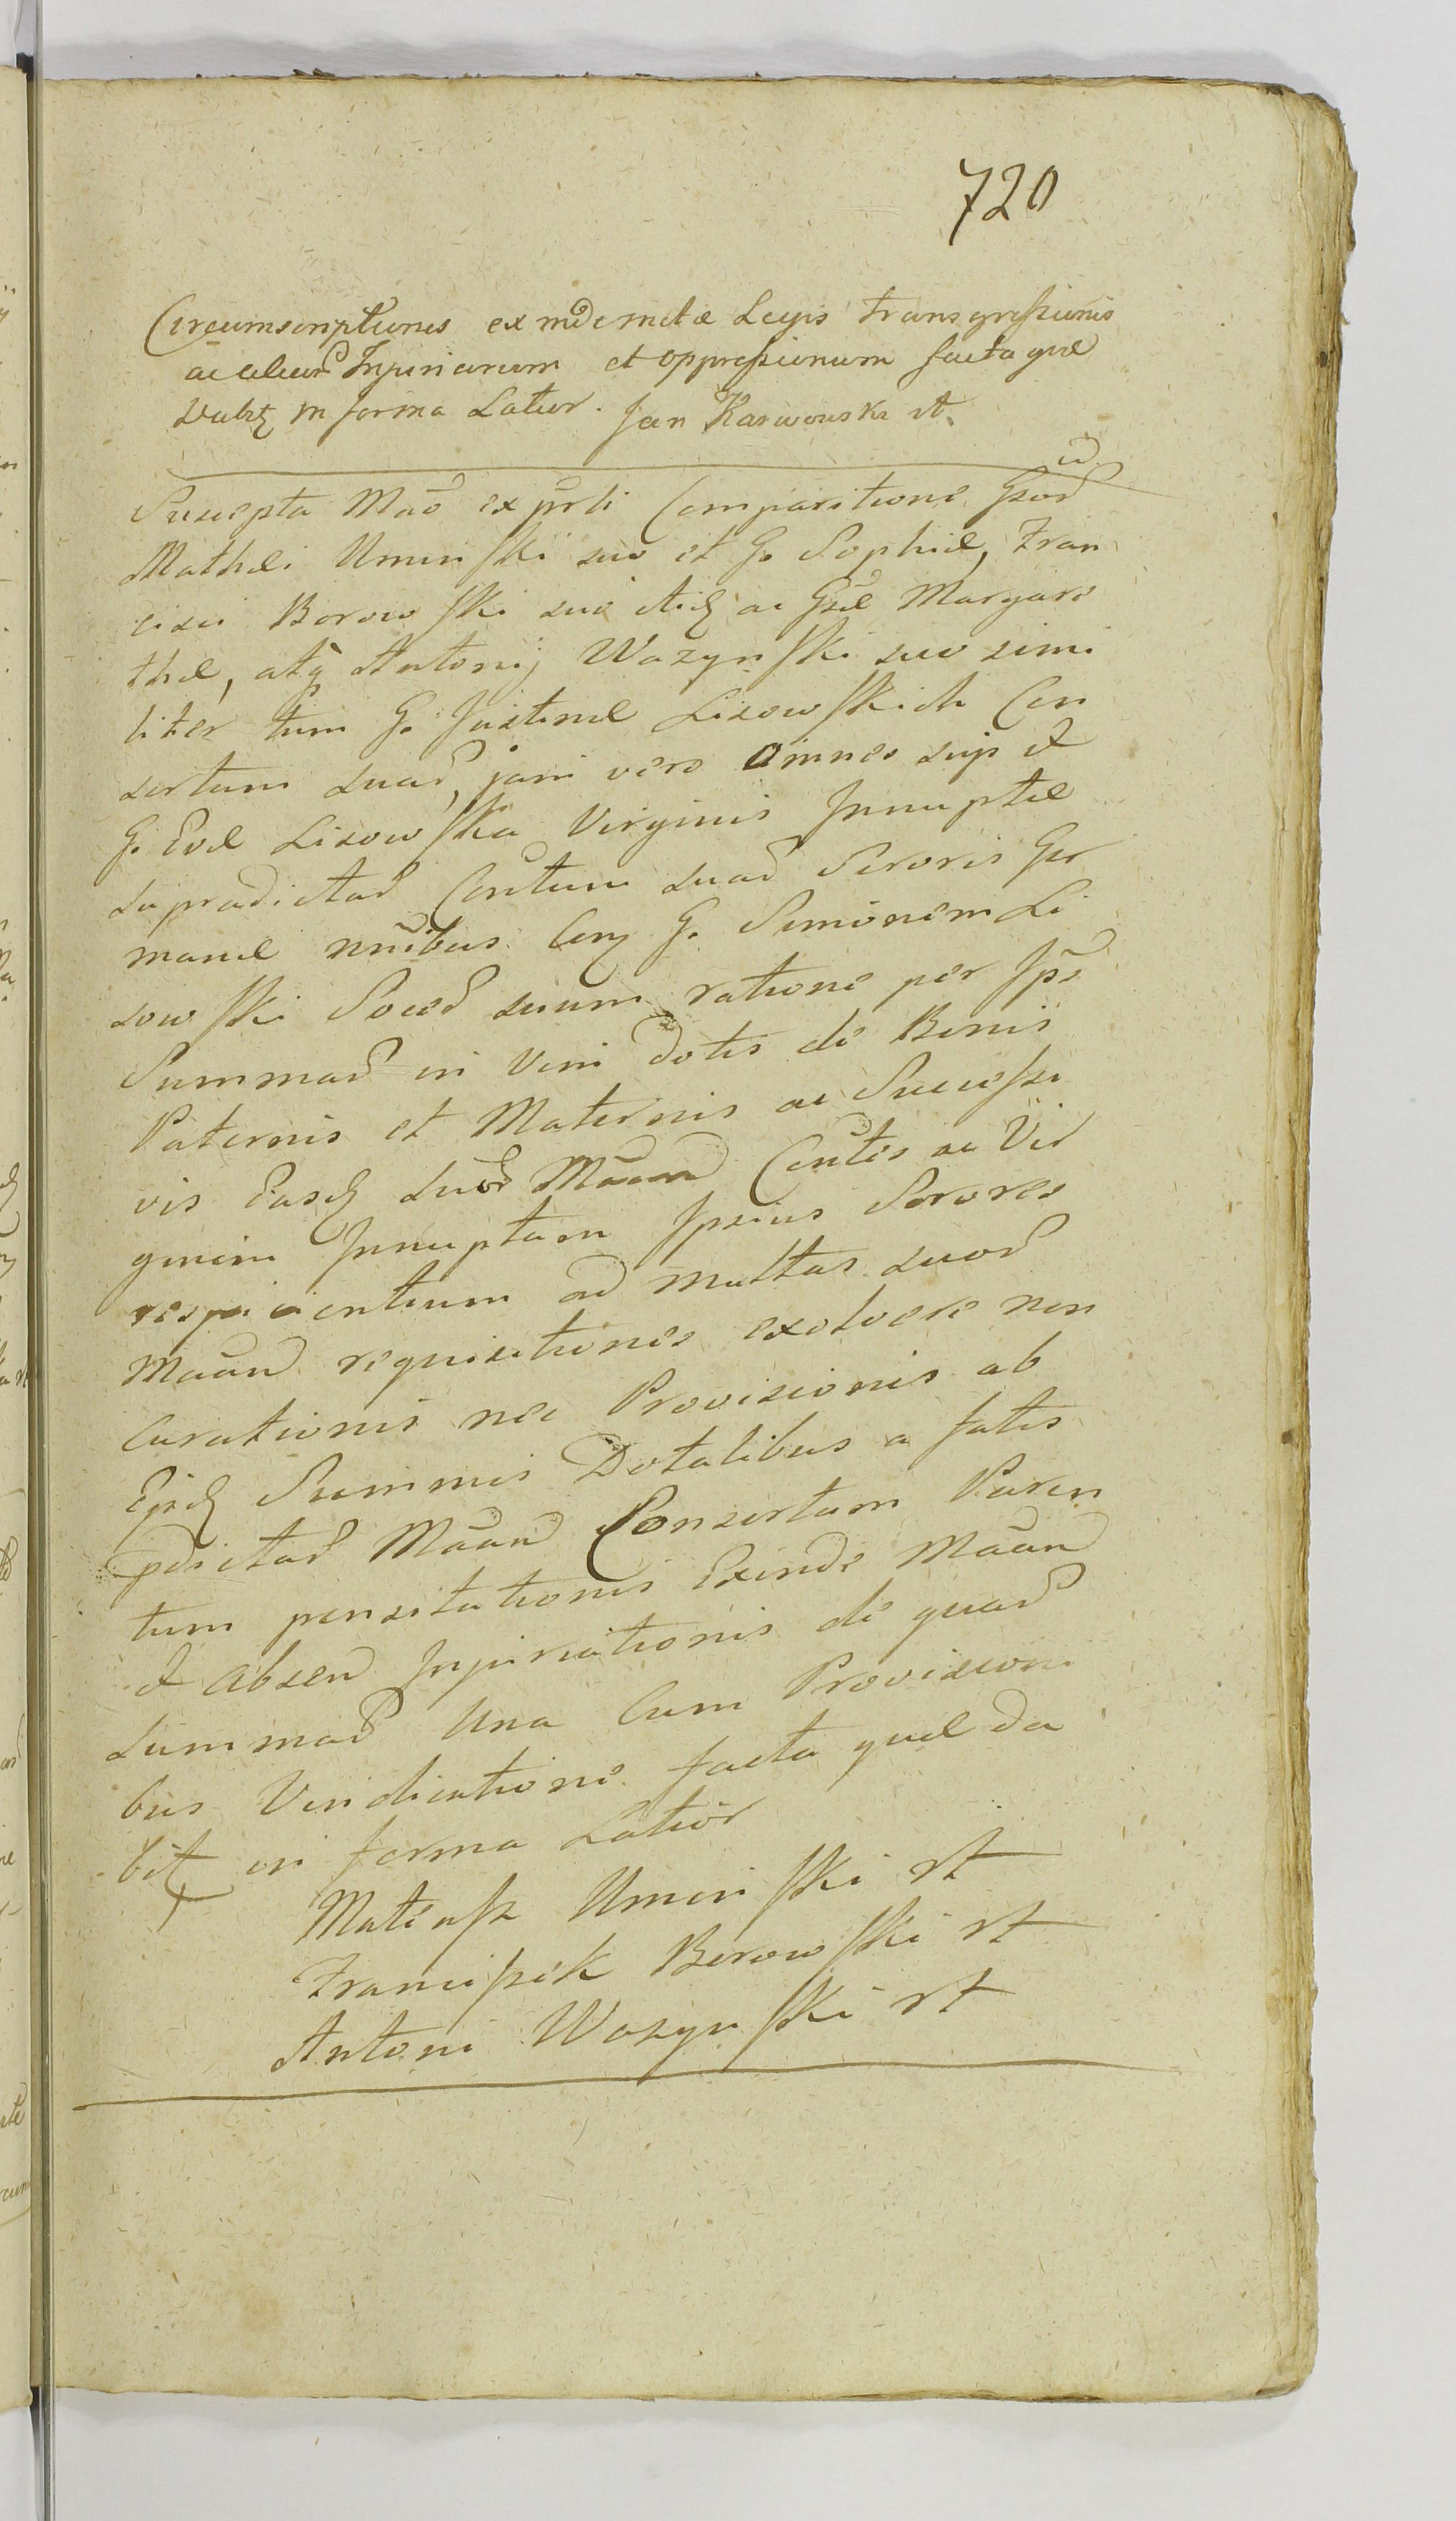 720
Circumscriptiones ex indemnitæ Legis transgressionis
ac aliar Injuriarum et oppressionum facta quæ
Dabit in forma Latior. Jan Karwowski rt.
Suscepta Mao ex prsti Comparitione Gsor
Mathæi Uminski suo et G. Sophiæ, Fran
cisci Borowski suo itid ac Gsæ Margare
thæ, atq Antonij Wazynski suo simi
liter tum G. Justinæ Lisowskich Con
sortum suar, jam vero omnes sup et
G. Evæ Lisowska Virginis Innuptæ
supradictar Contum suar Sororis Ger
manæ nnibus Cong G. Simonem Li
sowski Socer suum ratione per Ips
Summar in Vim dotis de Bonis
Paternis et Maternis ac Successi
vis Easd suor Maan Contes ac Vir
ginem Innuptam Ipsius Sorores
respicientium ad multas suor
Maan requisitiones exolvere non
Curationis nec Provisionis ab
Ejsd Summis Dotalibus a fatis
pdictar Maan Consortum Paren
tum pensitationis Exinde Maan
et absen Injuriationis de quar
summar Una Cum Provisioni
bus Vindicatione facta quæ da
bit in forma Latior
Mateusz Uminski rt
Franciszek Borowski rt
Antoni Wazynski rt